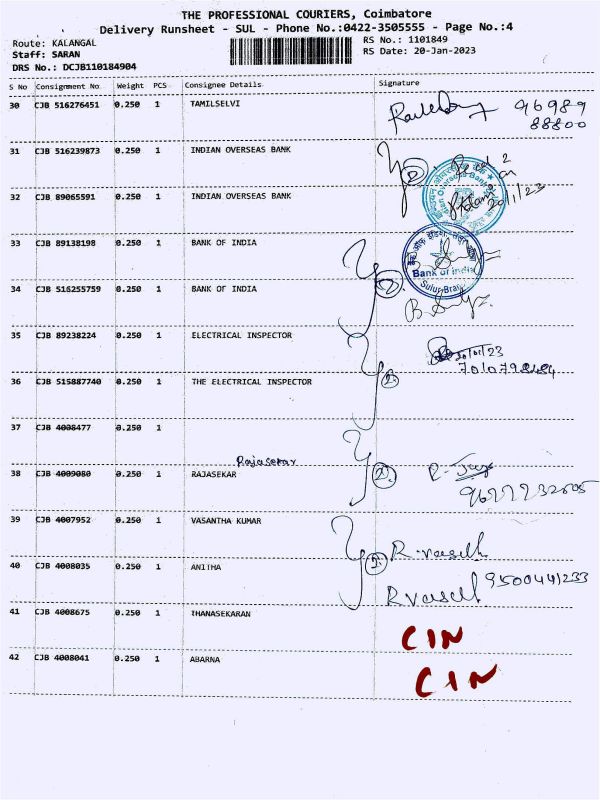 THE PROFESSIONAL COURIERS, Coimbatore
Delivery Runsheet - SUL - Phone No.:0422-3505555 - Page No.:4
Route: KALANGAL
RS No.: 1101849
Staff: SARAN
RS Date: 20-Jan-2023
DRS No.: DCJB110184904
S No Consignment No Weight PCS Consignee Details Signature
30 CJB 516276451 0.250 1 TAMILSELVI
96989
88800
31 CJB 516239873 0.250 1 INDIAN OVERSEAS BANK
32 CJB 89065591 0.250 1 INDIAN OVERSEAS BANK
20/1/23
33 CJB 89138198 0.250 1 BANK OF INDIA
Bank of India
34 CJB 516255759 0.250 1 BANK OF INDIA
35 CJB 89238224 0.250 1 ELECTRICAL INSPECTOR
20/01/23
36 CJB 515887740 0.250 1 THE ELECTRICAL INSPECTOR
37 CJB 4008477 0.250 1
Rajasekar
38 CJB 4009080 0.250 1 RAJASEKAR
39 CJB 4007952 0.250 1 VASANTHA KUMAR
40 CJB 4008035 0.250 1 ANITHA
9500441233
41 CJB 4008675 0.250 1 THANASEKARAN
CIN
42 CJB 4008041 0.250 1 ABARNA
CIN